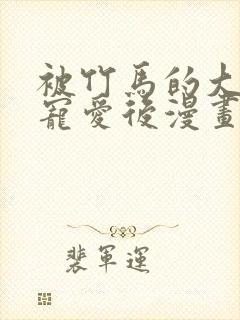 被竹馬的大
寵愛後漫畫
裴軍運